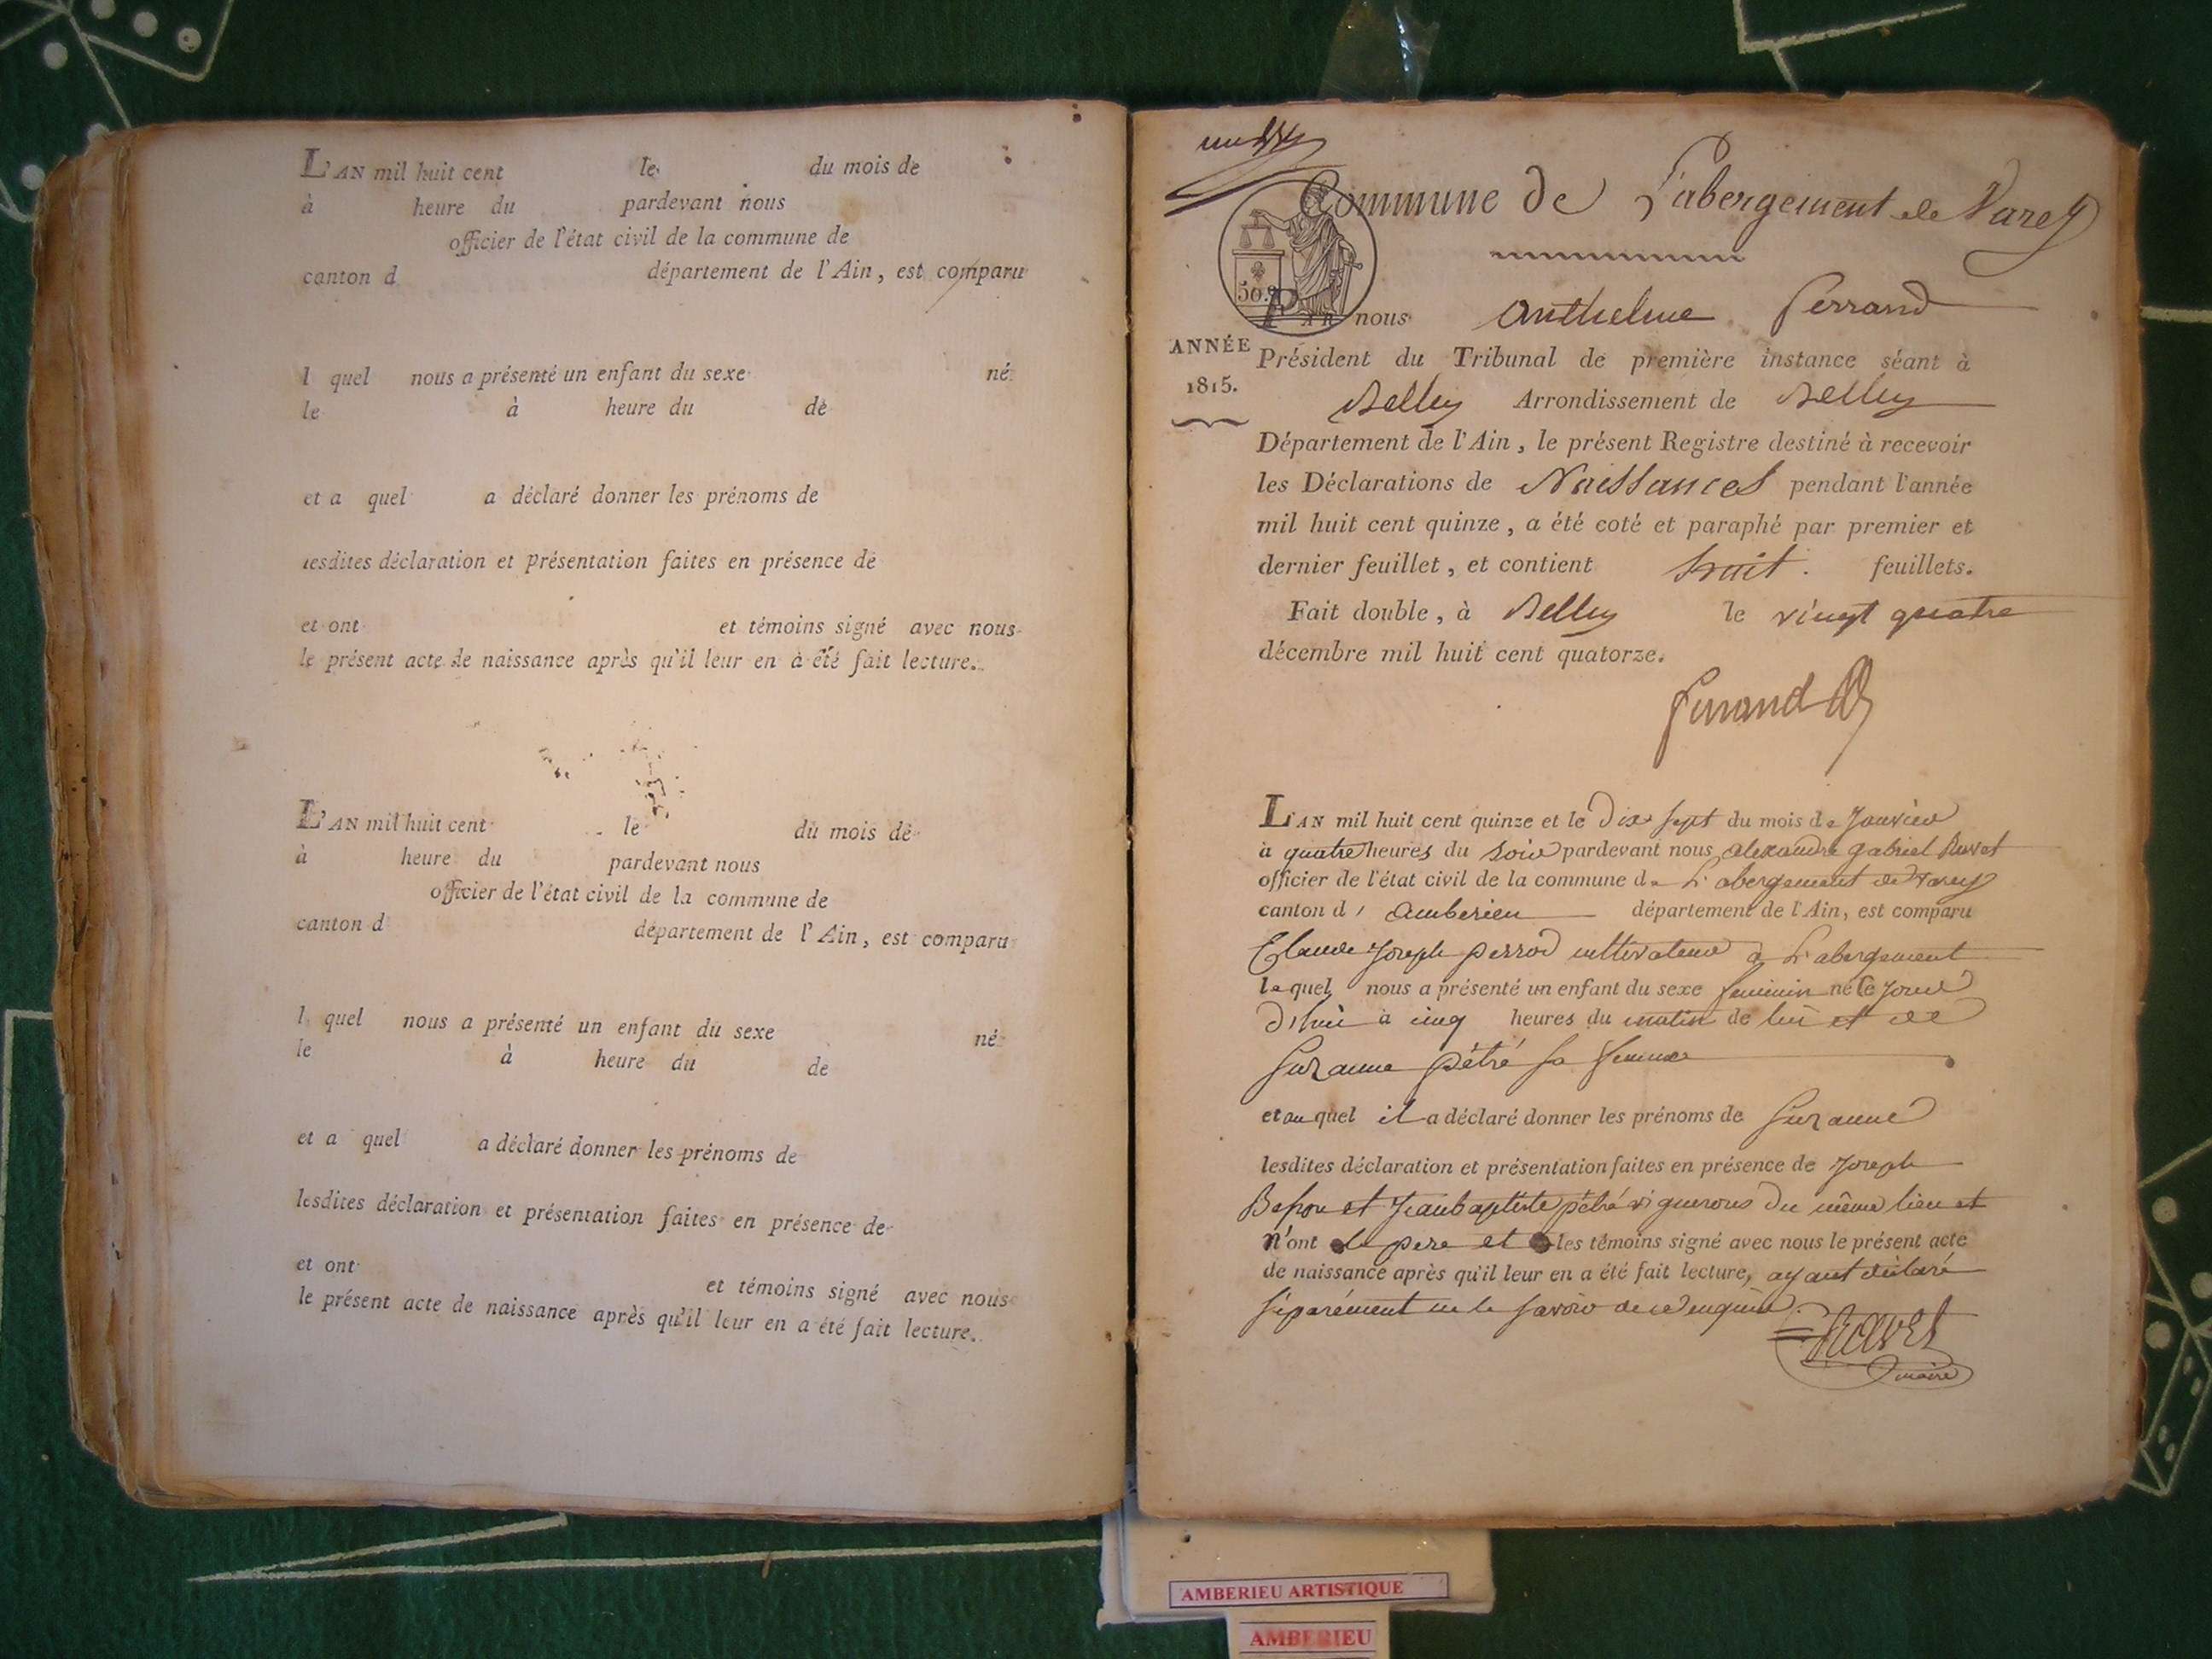 L'AN mil huit cent le du mois de
à heure du pardevant nous
officier de l'état civil de la commune de
canton d département de l'Ain, est comparu
l quel nous a présenté un enfant du sexe né
le à heure du de
et a quel a déclaré donner les prénoms de
lesdites déclaration et présentation faites en présence de
et ont et témoins signé avec nous
le présent acte de naissance après qu'il leur en a été fait lecture.
L'AN mil huit cent le du mois de
à heure du pardevant nous
officier de l'état civil de la commune de
canton d département de l'Ain, est comparu
l quel nous a présenté un enfant du sexe né
le à heure du de
et a quel a déclaré donner les prénoms de
lesdites déclaration et présentation faites en présence de
et ont et témoins signé avec nous
le présent acte de naissance après qu'il leur en a été fait lecture.
Commune de L'abergement de Varey
50.c
PAR nous Anthelme Ferrand
ANNÉE
1815.
Président du Tribunal de première instance séant à
Belley Arrondissement de Belley
Département de l'Ain, le présent Registre destiné à recevoir
les Déclarations de Naissances pendant l'année
mil huit cent quinze, a été coté et paraphé par premier et
dernier feuillet, et contient huit feuillets.
Fait double, à Belley le vingt quatre
décembre mil huit cent quatorze.
Ferrand
L'AN mil huit cent quinze et le Dix sept du mois de Janvier
à quatre heures du soir pardevant nous alexandre gabriel Ravet
officier de l'état civil de la commune de L'abergement de varey
canton d'Amberieu département de l'Ain, est comparu
Claude Joseph perrod cultivateur à L'abergement
lequel nous a présenté un enfant du sexe feminin né le Jour
D'hui à cinq heures du matin de lui et de
Suzanne pétré sa femme
et au quel il a déclaré donner les prénoms de Suzanne
lesdites déclaration et présentation faites en présence de Joseph
et Jeanbaptiste pétré vignerons du même lieu et
n'ont le pere et les témoins signé avec nous le présent acte
de naissance après qu'il leur en a été fait lecture, ayant déclaré
séparément ne le savoir de ce enquis.
Ravet
maire
AMBERIEU ARTISTIQUE
AMBERIEU